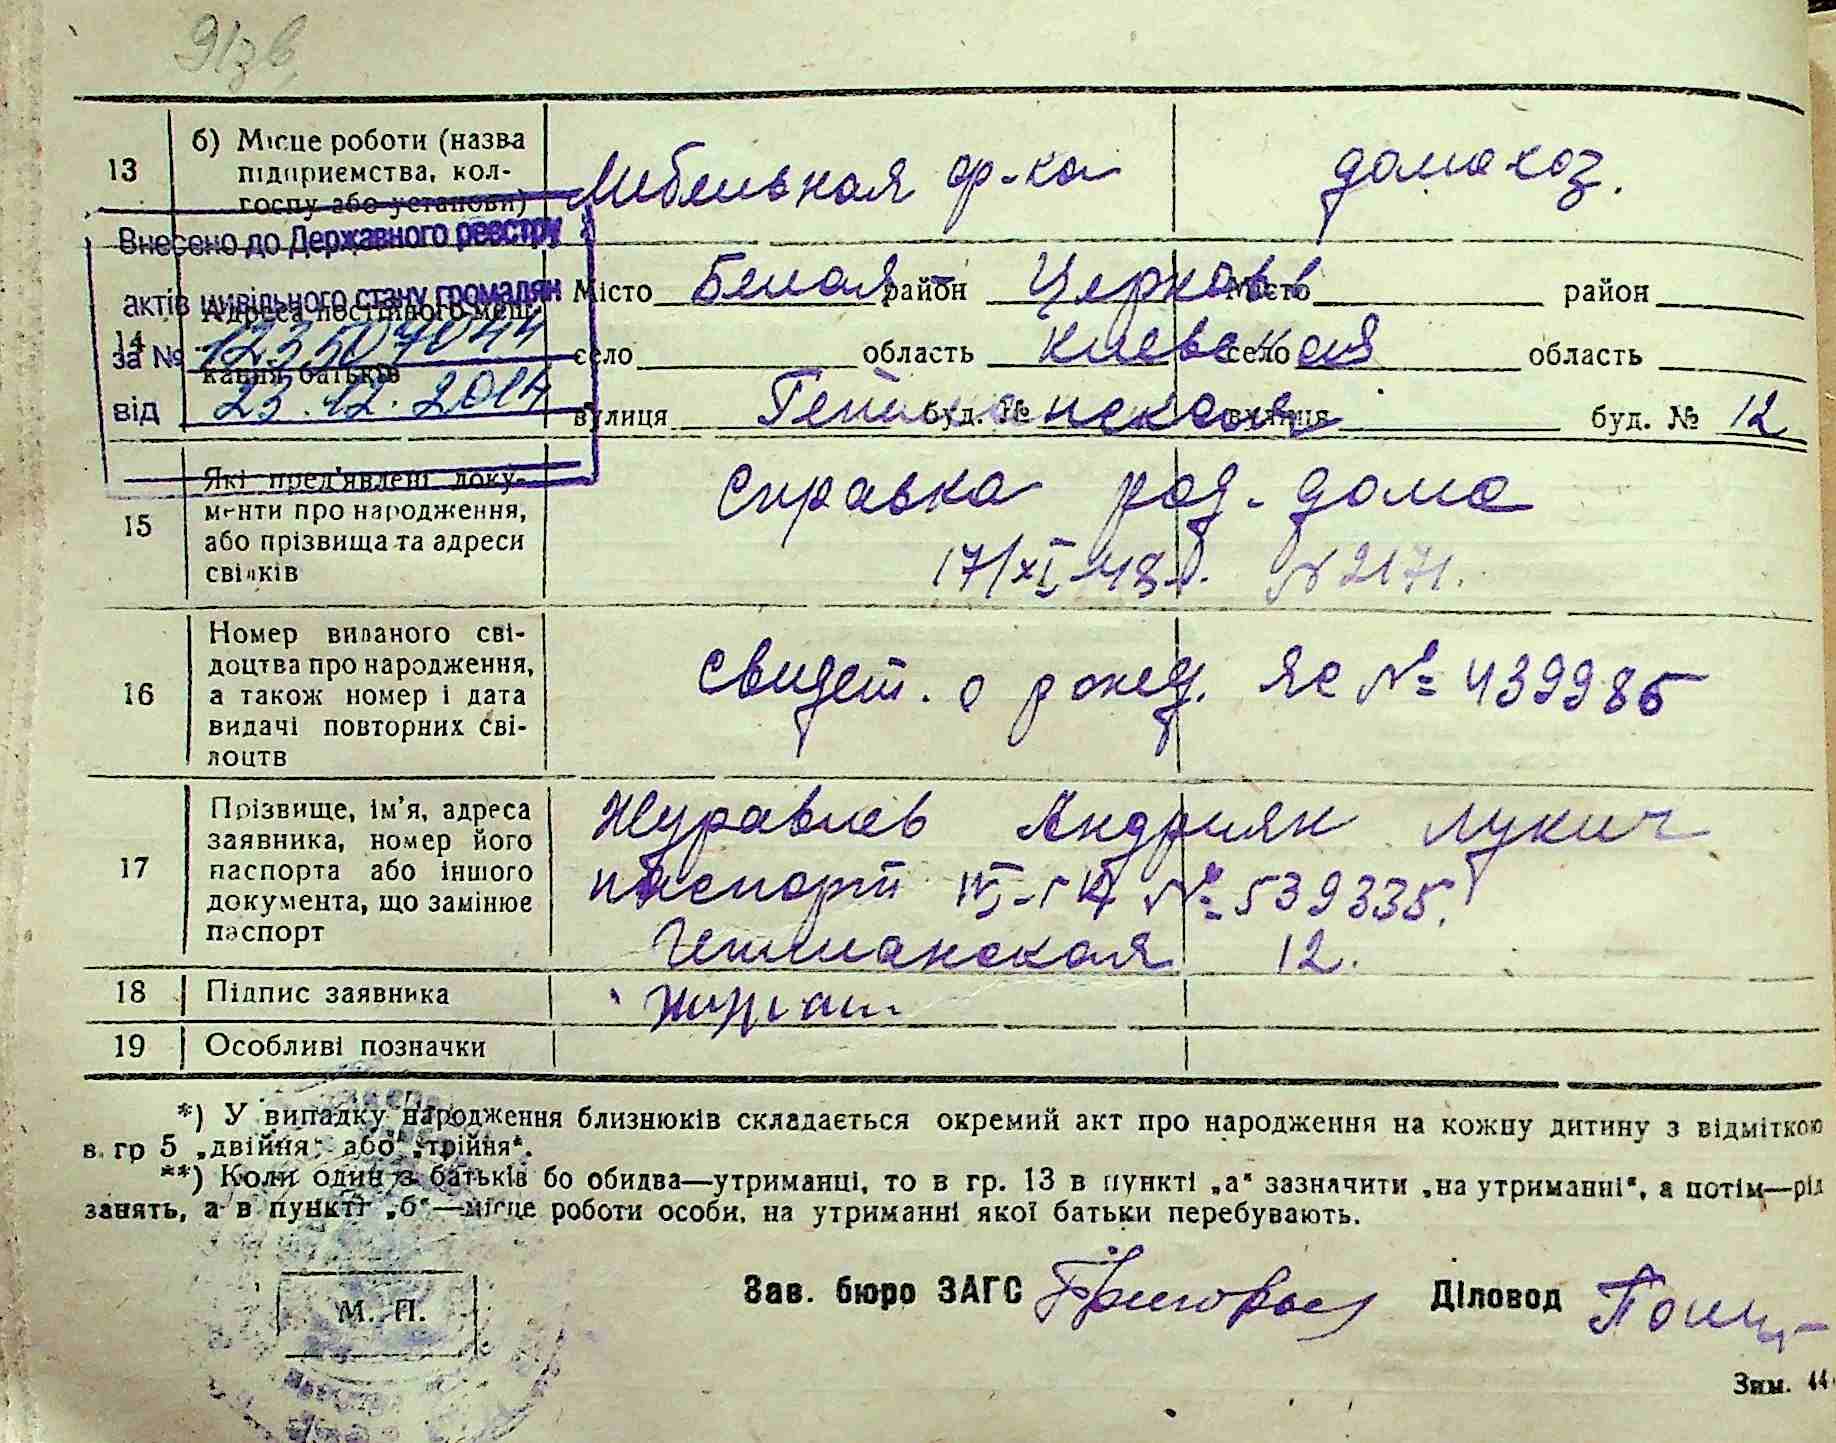 13 б) Місце роботи (назва підприємства, колгоспу або установи)
Мебельная ф-ка
домахоз.
Внесено до Державного реєстру
актів цивільного стану громадян
за № 12350 7044
від 23.12.2014
14 Адреса постійного мешкання батьків
Місто Белая район Церковь Місто район
село область Киевская село область
вулиця Гетманская буд. № вулиця буд. № 12
15 Які пред'явлені документи про народження, або прізвища та адреси свідків
Справка род. дома
17/XI 48 г. № 2171.
16 Номер виданого свідоцтва про народження, а також номер і дата видачі повторних свідоцтв
Свидет. о рожд. ЯС № 439985
17 Прізвище, ім'я, адреса заявника, номер його паспорта або іншого документа, що замінює паспорт
Журавлев Андриян Лукич
паспорт № 539335.
Гетманская 12.
18 Підпис заявника
19 Особливі позначки
*) У випадку народження близнюків складається окремий акт про народження на кожну дитину з відміткою
в гр 5 „двійня" або „трійня".
**) Коли один з батьків бо обидва—утриманці, то в гр. 13 в пункті „а" зазначити „на утриманні", а потім—рід
занять, а в пункті „б"—місце роботи особи, на утриманні якої батьки перебувають.
Зав. бюро ЗАГС Діловод
М. П.
Зам. 44